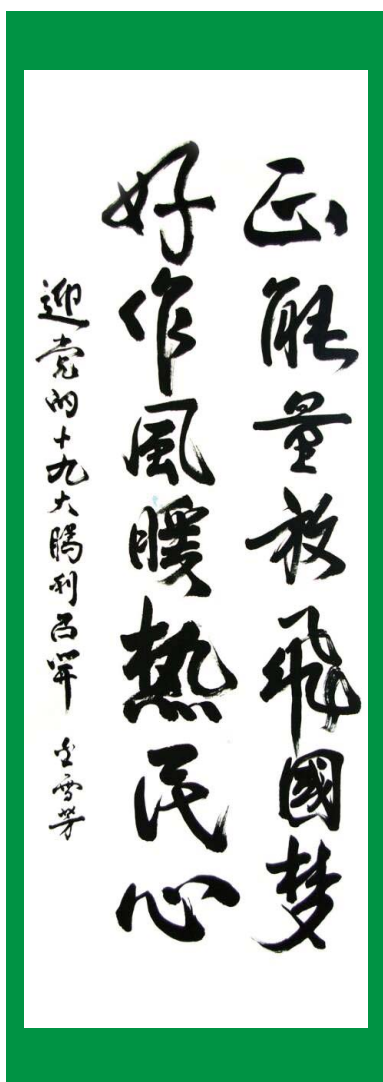 正能量放飛國梦
好作風暖热民心
迎党的十九大勝利召開 金雪芳